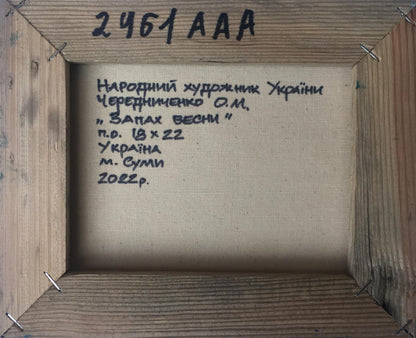 2461 AAA
Народний художник України
Чередниченко О.М.
„Запах весни"
п.о. 18 x 22
Україна
м. Суми
2022р.